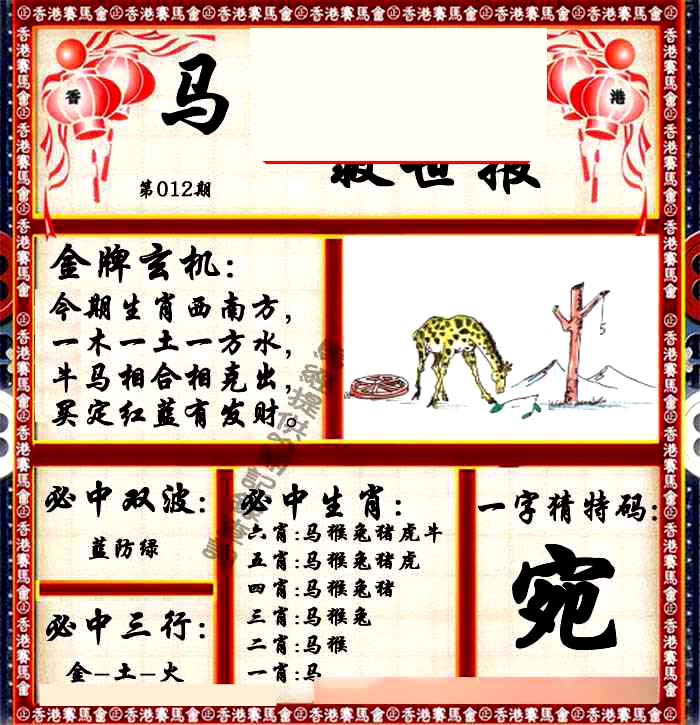 ㊣香港賽馬會㊣香港賽馬會㊣香港賽馬會㊣香港賽馬會㊣香港賽馬會㊣香港賽馬會㊣
香
马
港
救世报
第012期
金牌玄机:
今期生肖西南方,
一木一土一方水,
牛马相合相克出,
买定红蓝有发财。
必中双波:
蓝防绿
必中三行:
金-土-火
必中生肖:
六肖:马猴兔猪虎牛
五肖:马猴兔猪虎
四肖:马猴兔猪
三肖:马猴兔
二肖:马猴
一肖:马
一字猜特码:
宛
5